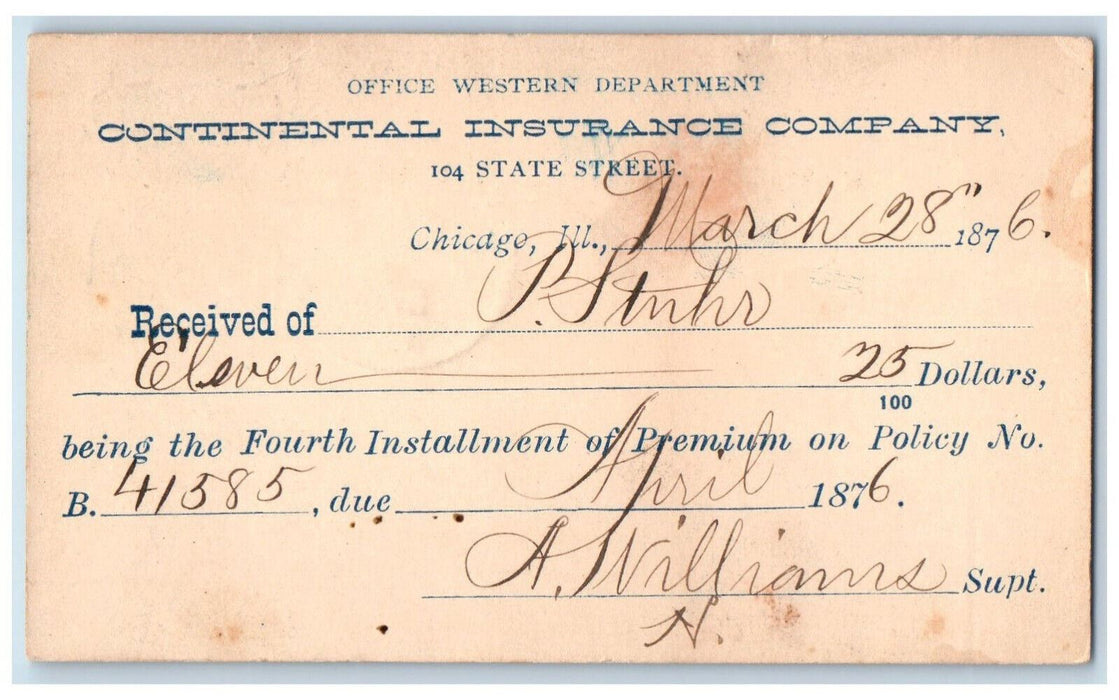 OFFICE WESTERN DEPARTMENT
CONTINENTAL INSURANCE COMPANY,
104 STATE STREET.
Chicago, Ill., March 28" 1876.
Received of P. Stuhr
Eleven 25/100 Dollars,
being the Fourth Installment of Premium on Policy No.
B. 41585, due April 1876.
A. Williams Supt.
N.